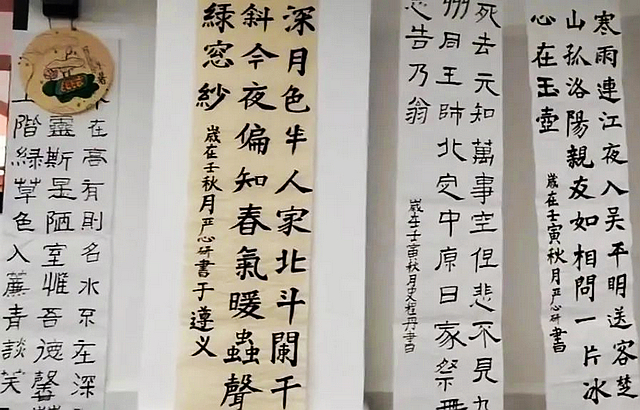 寒雨連江夜入吴平明送客楚
山孤洛陽親友如相問一片冰
心在玉壺
歲在壬寅秋月严心研書
死去元知萬事空但悲不見九
州同王師北定中原日家祭無
忘告乃翁
歲在壬寅秋月史程丹書
深月色半人家北斗闌干
斜今夜偏知春氣暖蟲聲
緑窓紗
歲在壬秋月严心研書于遵义
在高有則名水不在深
靈斯是陋室惟吾德馨
上階緑草色入簾青談笑